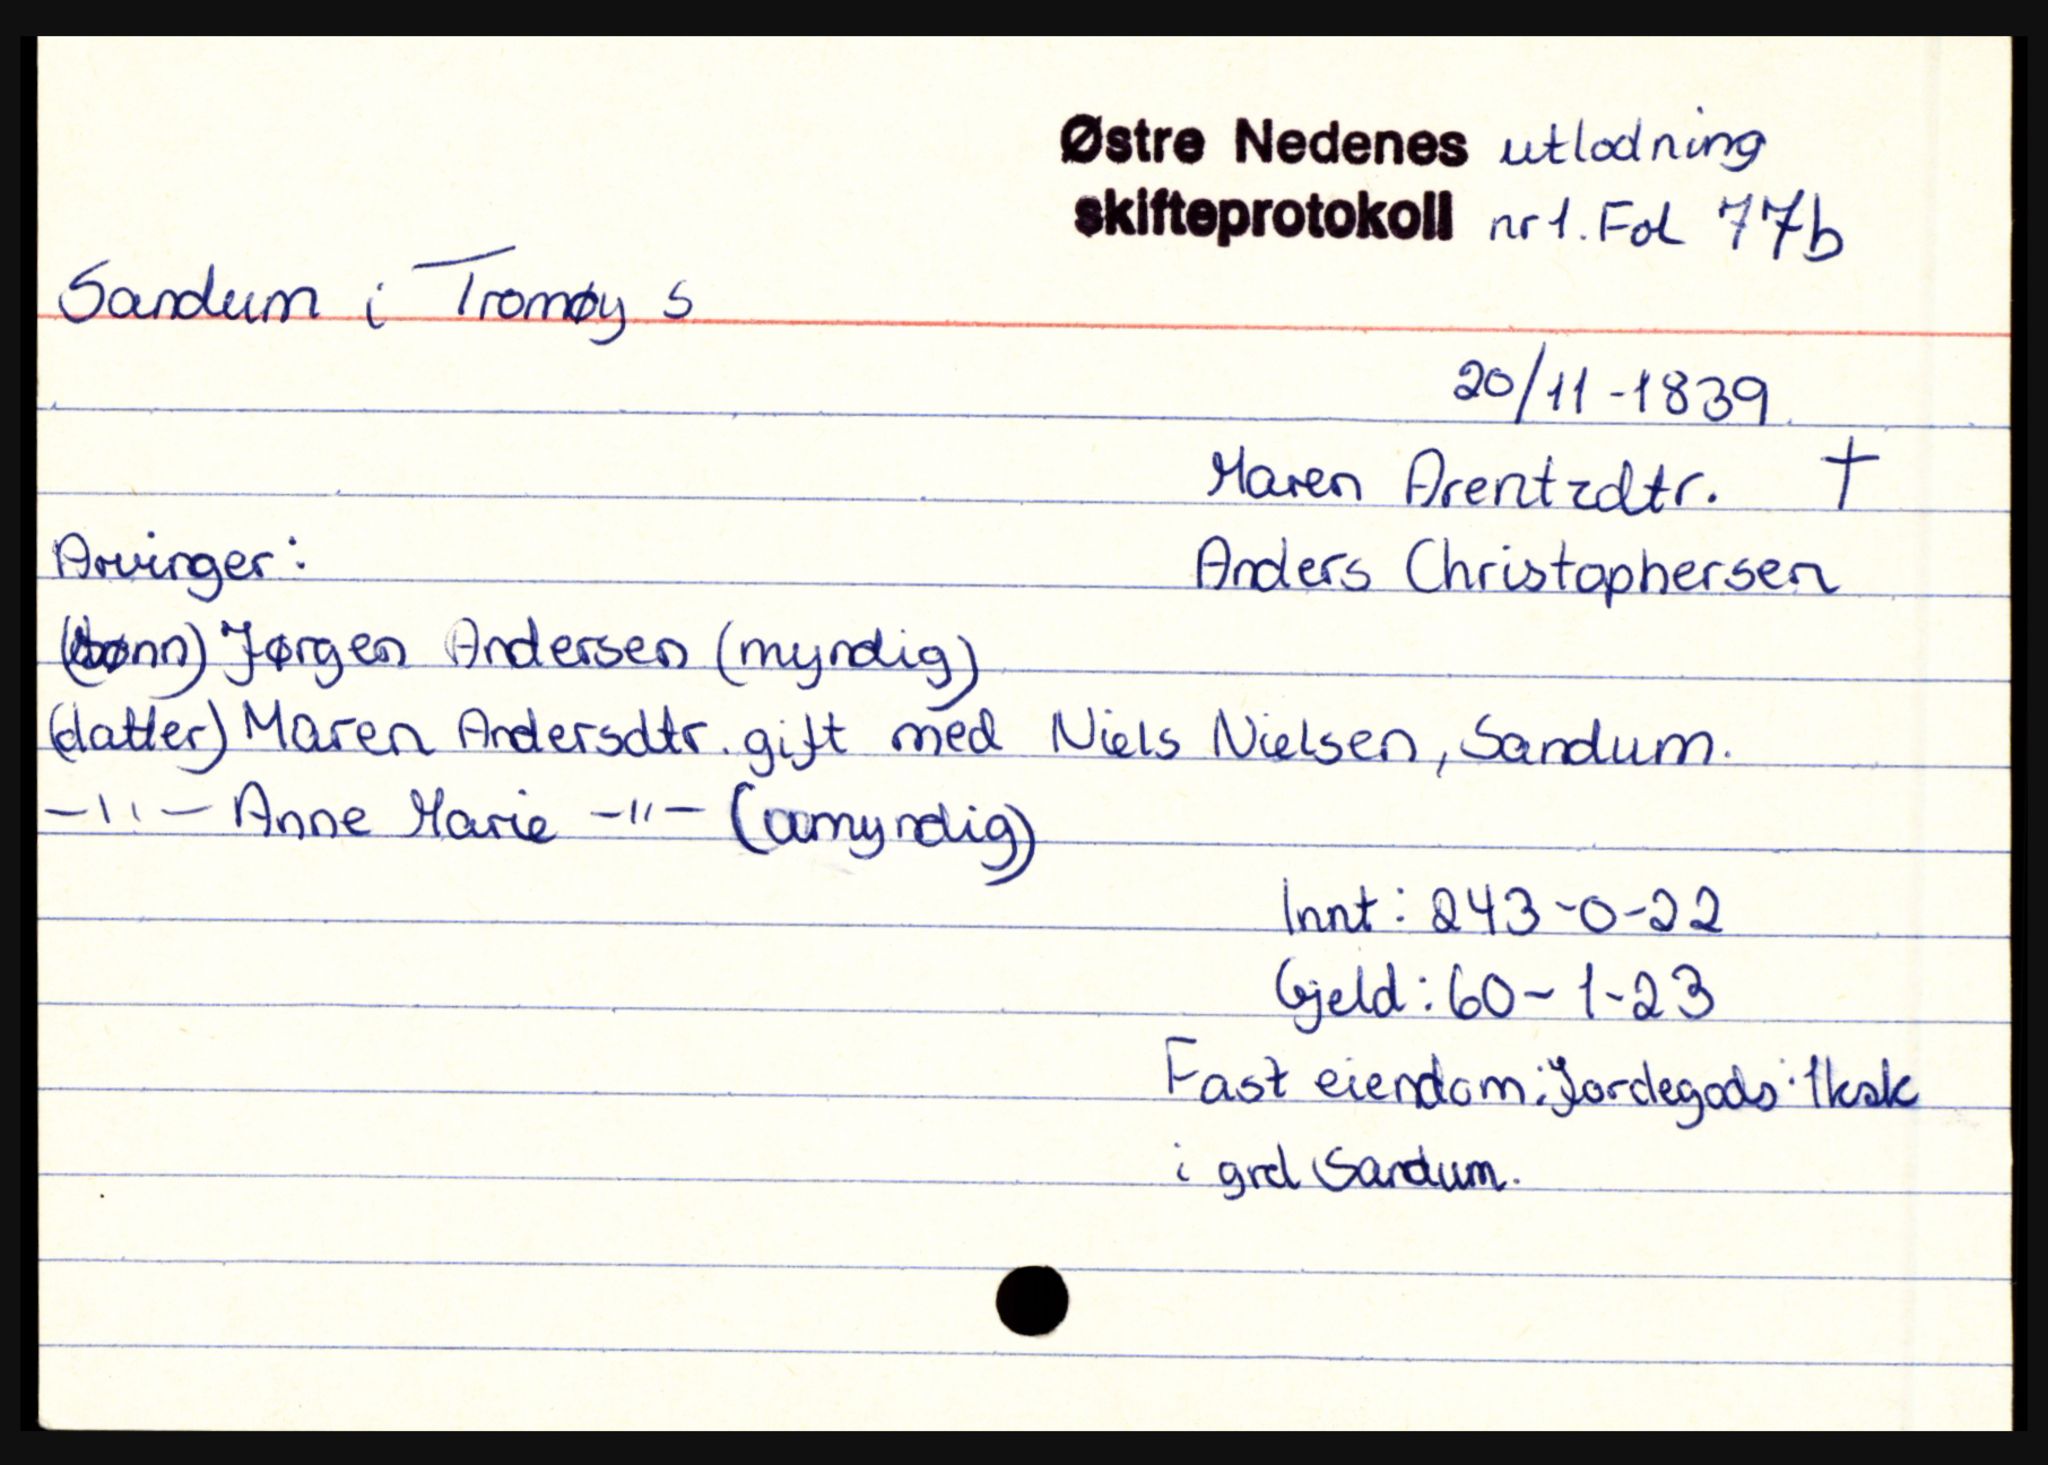 Østre Nedenes utlodning
skifteprotokoll nr 1. Fol 77b
Sandum i Tromøy s
20/11-1839
Maren Arentzdtr. †
Arvinger:
Anders Christophersen
(sønn) Jørgen Andersen (myndig)
(datter) Maren Andersdtr. gift med Niels Nielsen, Sandum.
-"- Anne Marie -"- (umyndig)
Innt: 243-0-22
Gjeld: 60-1-23
Fast eiendom: Jordegods: 1ksk
i grd Sandum.